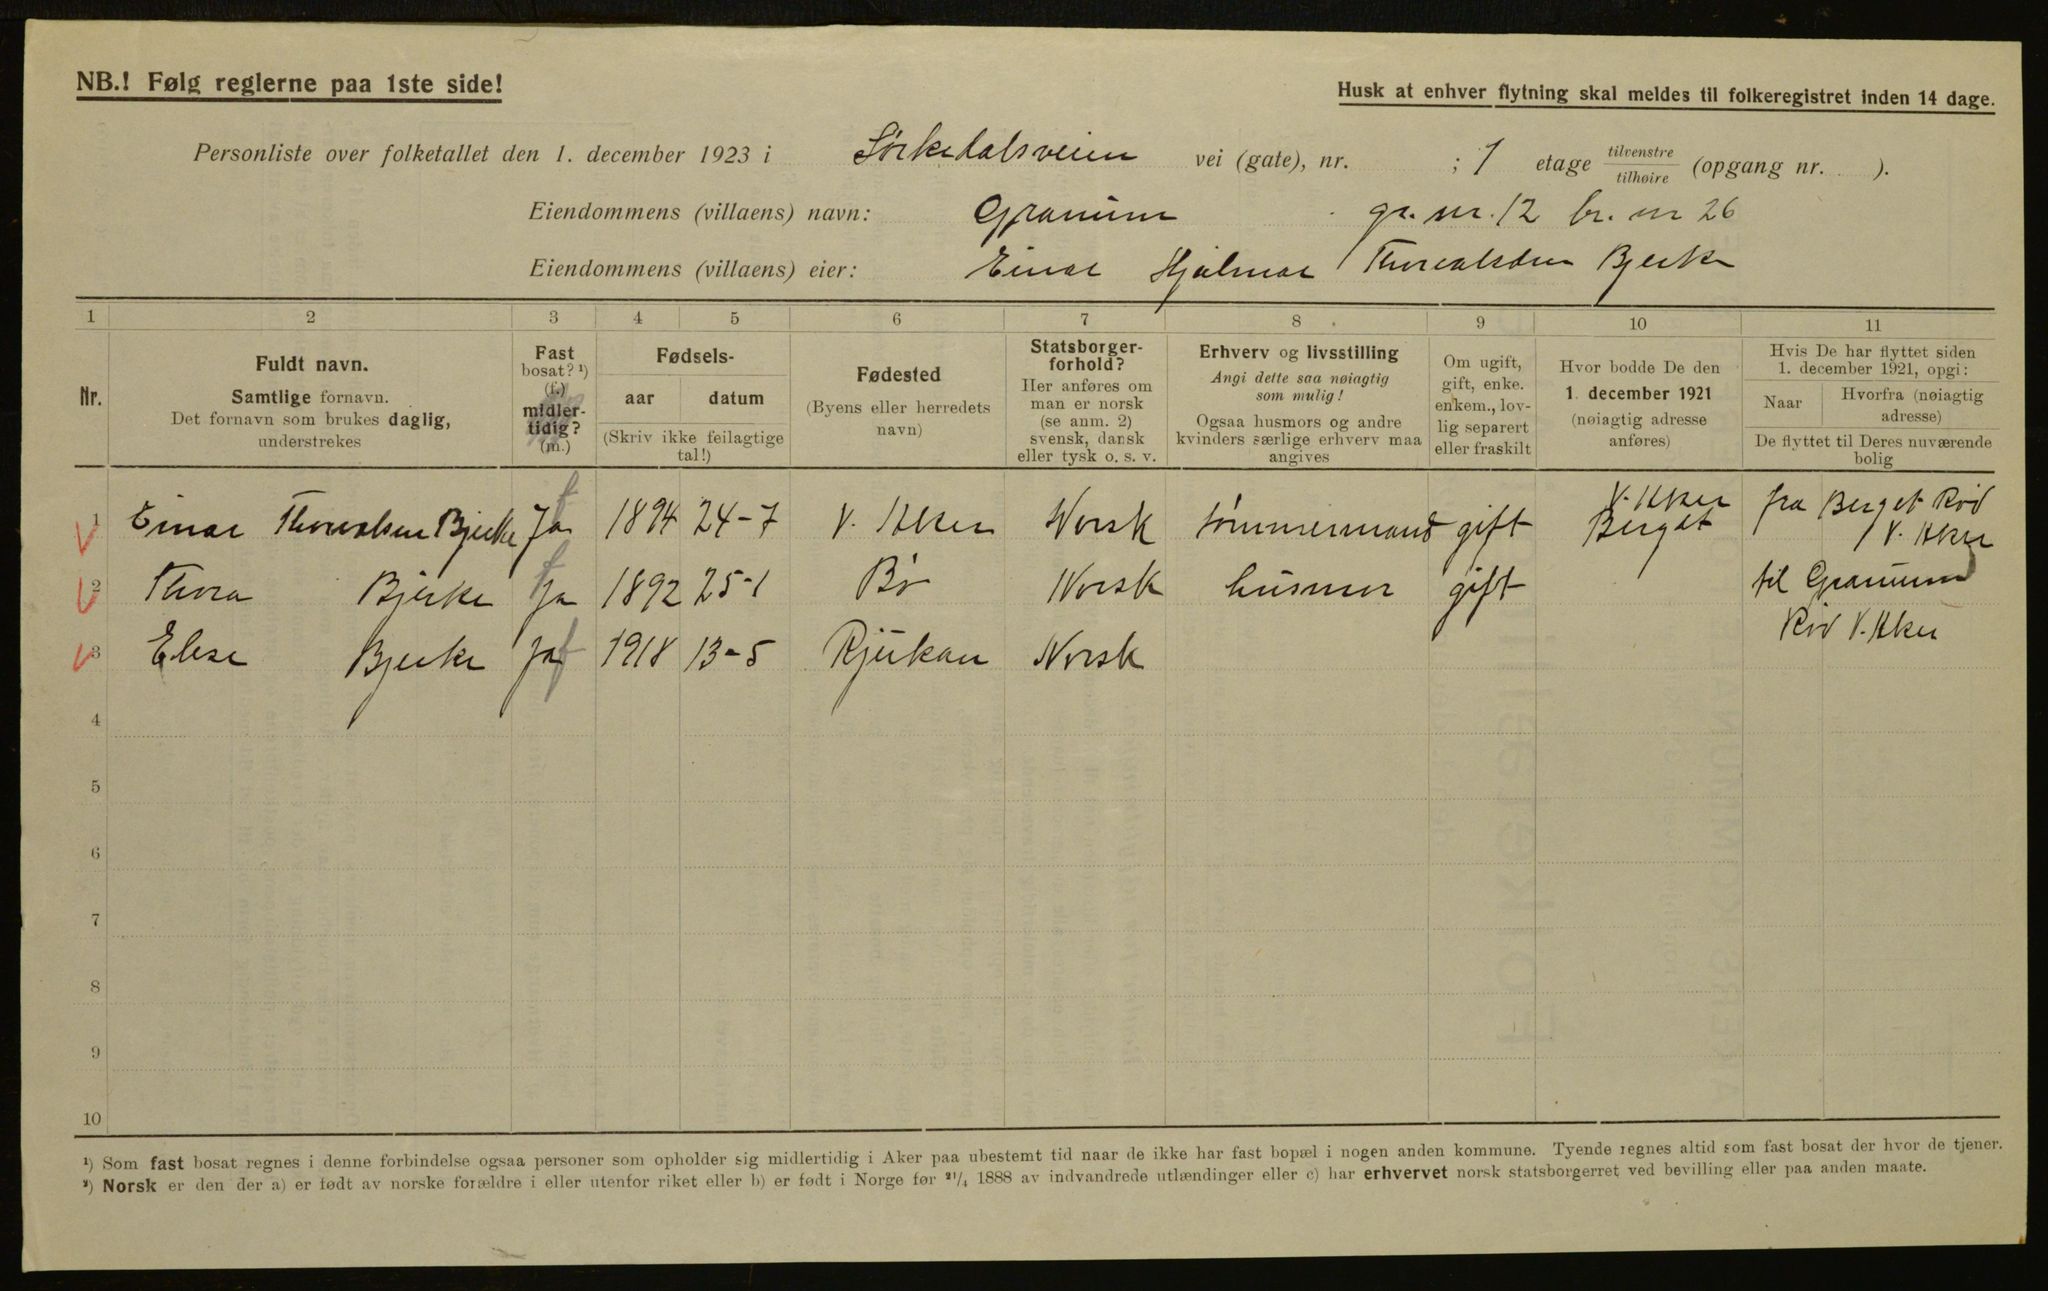 NB.! Følg reglerne paa 1ste side!
Husk at enhver flytning skal meldes til folkeregistret inden 14 dage.
Personliste over folketallet den 1. december 1923 i Sørkedalsveien vei (gate), nr. ; 1 etage tilvenstre/tilhøire (opgang nr. ).
Eiendommens (villaens) navn: Granum gr. nr. 12 br. nr 26
Eiendommens (villaens) eier: Einar Hjalmar Thorvalsden Bjerke
1 2 3 4 5 6 7 8 9 10 11
Nr.
Fuldt navn.
Samtlige fornavn.
Det fornavn som brukes daglig,
understrekes
Fast
bosat? ¹)
(f.)
midler-
tidig?
(m.)
Fødsels-
aar datum
(Skriv ikke feilagtige
tal!)
Fødested
(Byens eller herredets
navn)
Statsborger-
forhold?
Her anføres om
man er norsk
(se anm. 2)
svensk, dansk
eller tysk o. s. v.
Erhverv og livsstilling
Angi dette saa nøiagtig
som mulig!
Ogsaa husmors og andre
kvinders særlige erhverv maa
angives
Om ugift,
gift, enke.
enkem., lov-
lig separert
eller fraskilt
Hvor bodde De den
1. december 1921
(nøiagtig adresse
anføres)
Hvis De har flyttet siden
1. december 1921, opgi:
Naar
Hvorfra (nøiagtig
adresse)
De flyttet til Deres nuværende
bolig
1 Einar Thorvalsen Bjerke Ja f 1894 24-7 V. Aker Norsk tømmermand gift V. Aker Berget fra Berget Röd
V. Aker
2 Thora Bjerke Ja f 1892 25-1 Bö Norsk husmor gift til Granum
Röd V. Aker
3 Else Bjerke Ja f 1918 13-5 Rjukan Norsk
4
5
6
7
8
9
10
¹) Som fast bosat regnes i denne forbindelse ogsaa personer som opholder sig midlertidig i Aker paa ubestemt tid naar de ikke har fast bopæl i nogen anden kommune. Tyende regnes altid som fast bosat der hvor de tjener.
²) Norsk er den der a) er født av norske forældre i eller utenfor riket eller b) er født i Norge før ²¹/₄ 1888 av indvandrede utlændinger eller c) har erhvervet norsk statsborgerret ved bevilling eller paa anden maate.